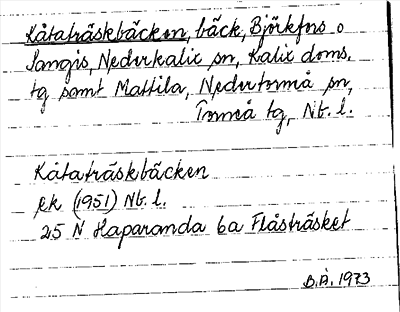 Kåtaträskbäcken, bäck, Björkfors o
Sangis, Nederkalix sn, Kalix doms.
tg samt Mattila, Nedertorneå sn,
Torneå tg, Nb. l.
Kåtaträskbäcken
ek (1951) Nb. l.
25 N Haparanda 6a Flåsträsket
B.Å. 1973